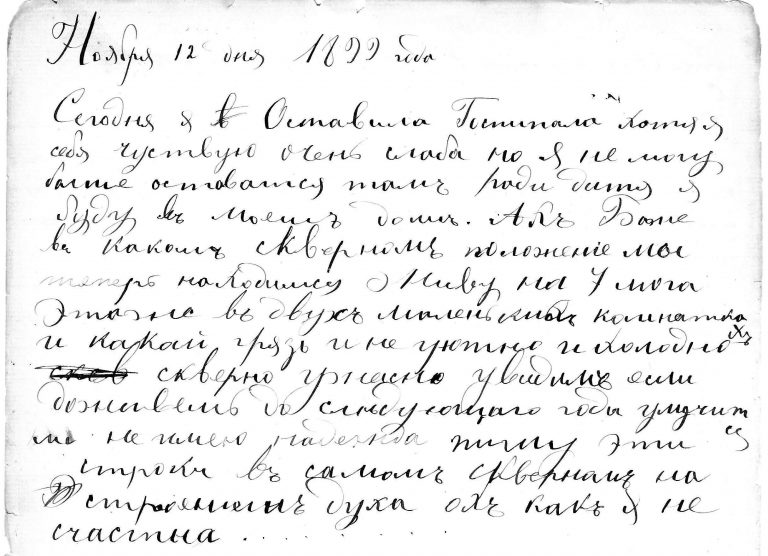 Ноября 12 дня 1899 года
Сегодня я Оставила Госпиталь хотя я
себя чуствую очень слаба но я не могу
больше оставатся тамъ ради дитя я
буду въ моемъ домѣ. Ахъ Боже
въ какомъ скверномъ положеніе мы
теперь находимся Живу на 4 мога
Этажѣ въ двухъ маленькихъ комнатка
хъ
и какай грязь и не уютно и холодно
скверно ужасно увидимъ если
доживемъ до слѣдующаго годы улучит
ся
не имею надежда пишу эти
строки въ самомъ скверномъ на
строениемъ духа охъ какъ я не
счастна . . . . . . .